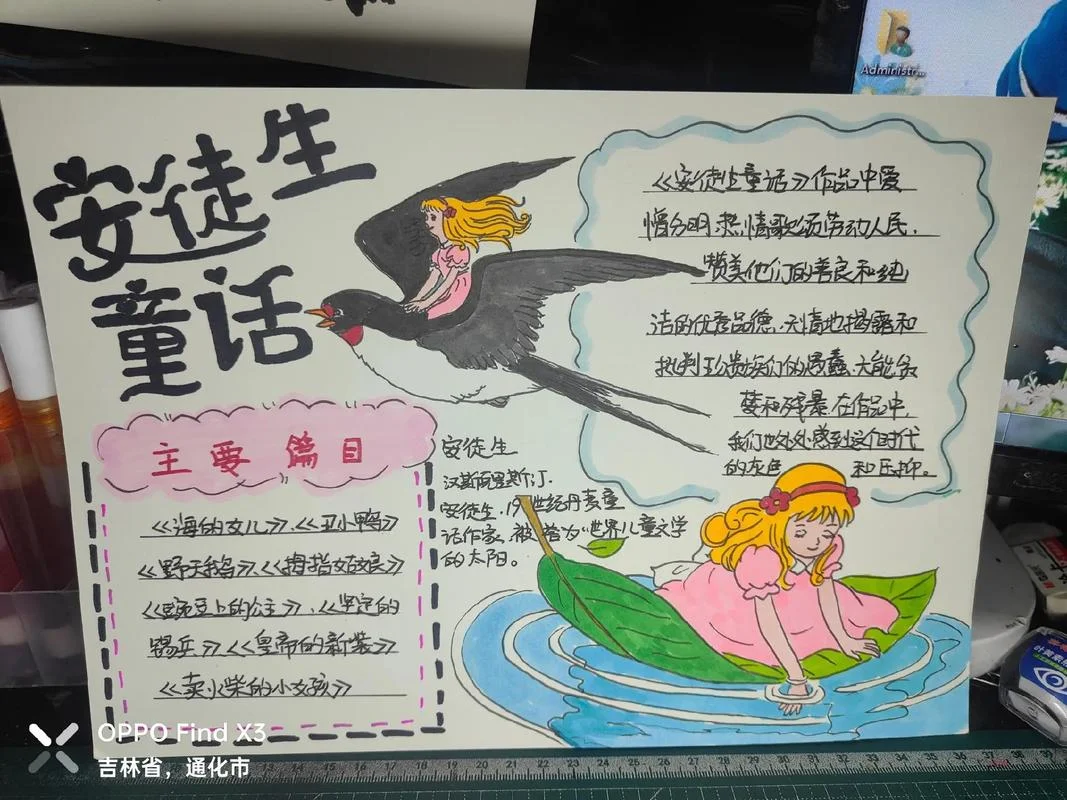 安徒生
童话
《安徒生童话》作品中爱
憎分明,热情歌颂劳动人民,
赞美他们的善良和纯
洁的优秀品德,无情地揭露和
批判王公贵族们的愚蠢、无能、贪
婪和残暴,在作品中,
我们也处处感到这个时代
的灰色 和压抑。
主要篇目
《海的女儿》、《丑小鸭》
《野天鹅》、《拇指姑娘》
《豌豆上的公主》、《坚定的
锡兵》《皇帝的新装》
《卖火柴的小女孩》
安徒生
汉斯·克里斯汀·
安徒生,19世纪丹麦童
话作家,被誉为"世界儿童文学
的太阳。
Administr...
OPPO Find X3
吉林省,通化市